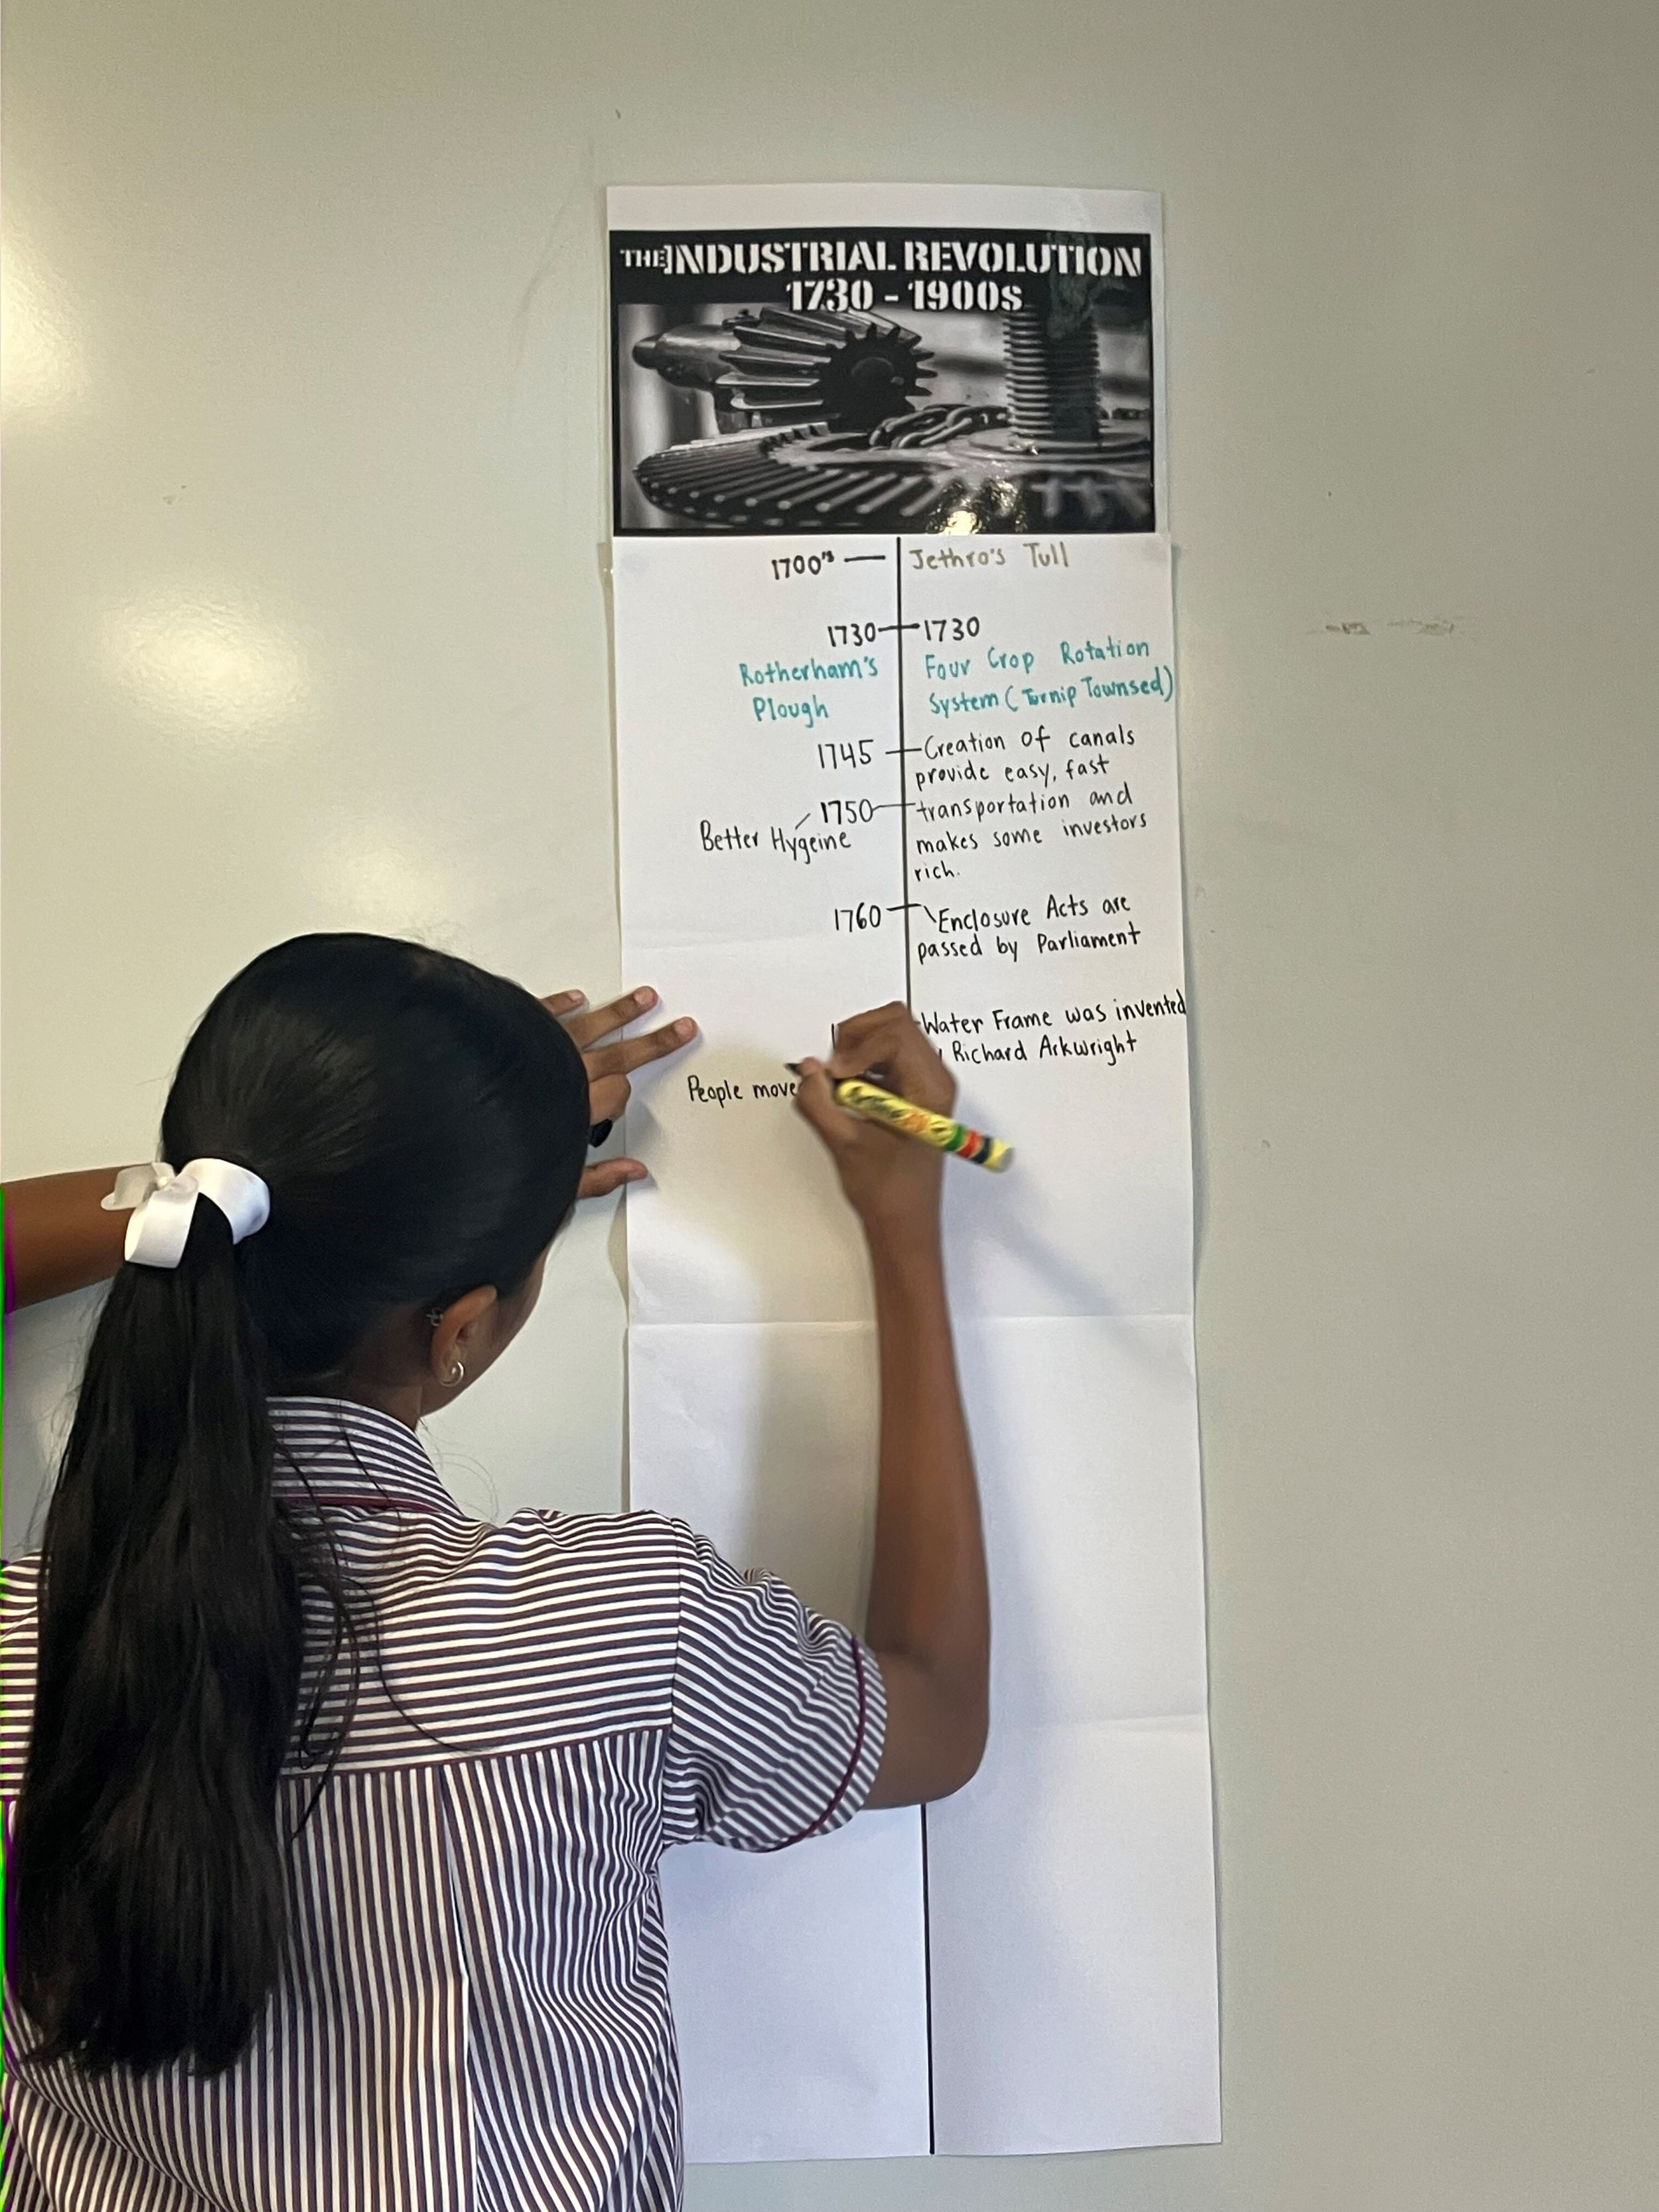 THE INDUSTRIAL REVOLUTION
1730 - 1900s
1700's — Jethro's Tull
1730 1730
Rotherham's
Plough
Four Crop Rotation
System (Turnip Townsed)
1745
Creation of canals
provide easy, fast
transportation and
makes some investors
rich.
1750
Better Hygeine
1760
Enclosure Acts are
passed by Parliament
Water Frame was invented
Richard Arkwright
People move